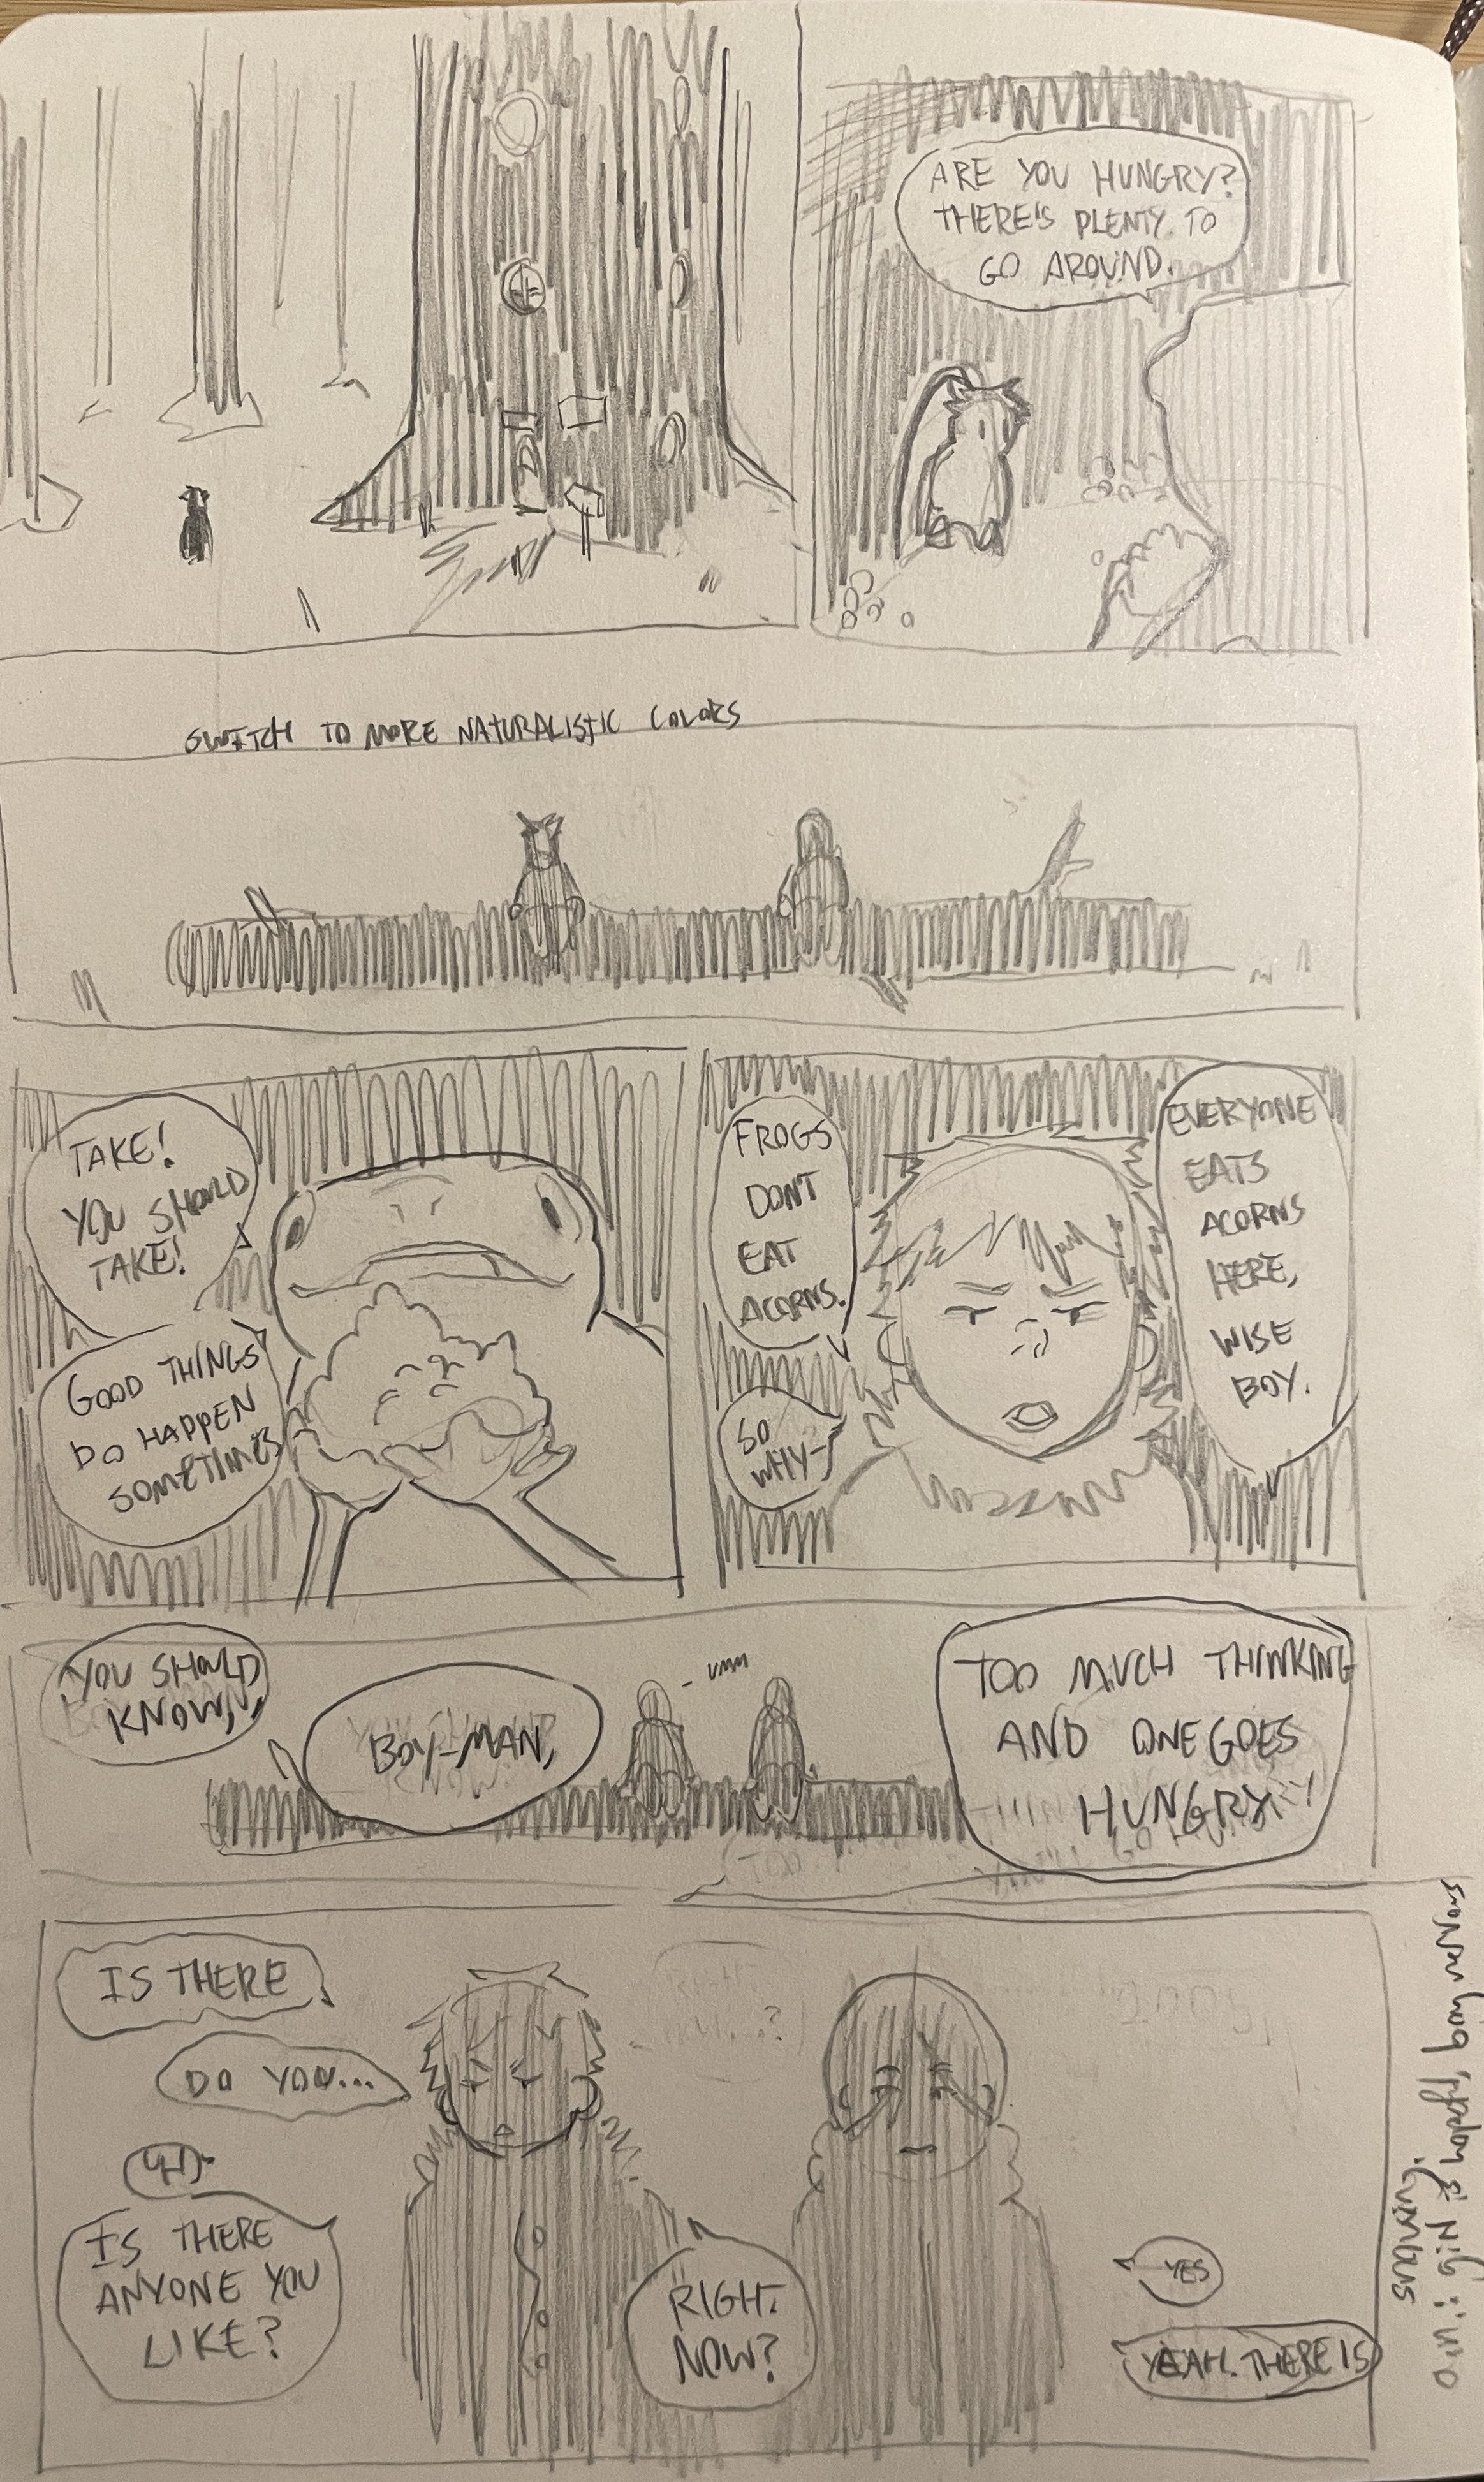 ARE YOU HUNGRY?
THERE'S PLENTY TO
GO AROUND.
SWITCH TO MORE NATURALISTIC COLORS
TAKE!
YOU SHOULD
TAKE!
GOOD THINGS
DO HAPPEN
SOMETIMES
FROGS
DON'T
EAT
ACORNS.
SO
WHY-
EVERYONE
EATS
ACORNS
HERE,
WISE
BOY.
YOU SHOULD
KNOW,
BOY-MAN,
- UMM
TOO MUCH THINKING
AND ONE GOES
HUNGRY
IS THERE
DO YOU...
UH.
IS THERE
ANYONE YOU
LIKE?
RIGHT.
NOW?
YES
YEAH. THERE IS
girl is hopeful, boy nervous